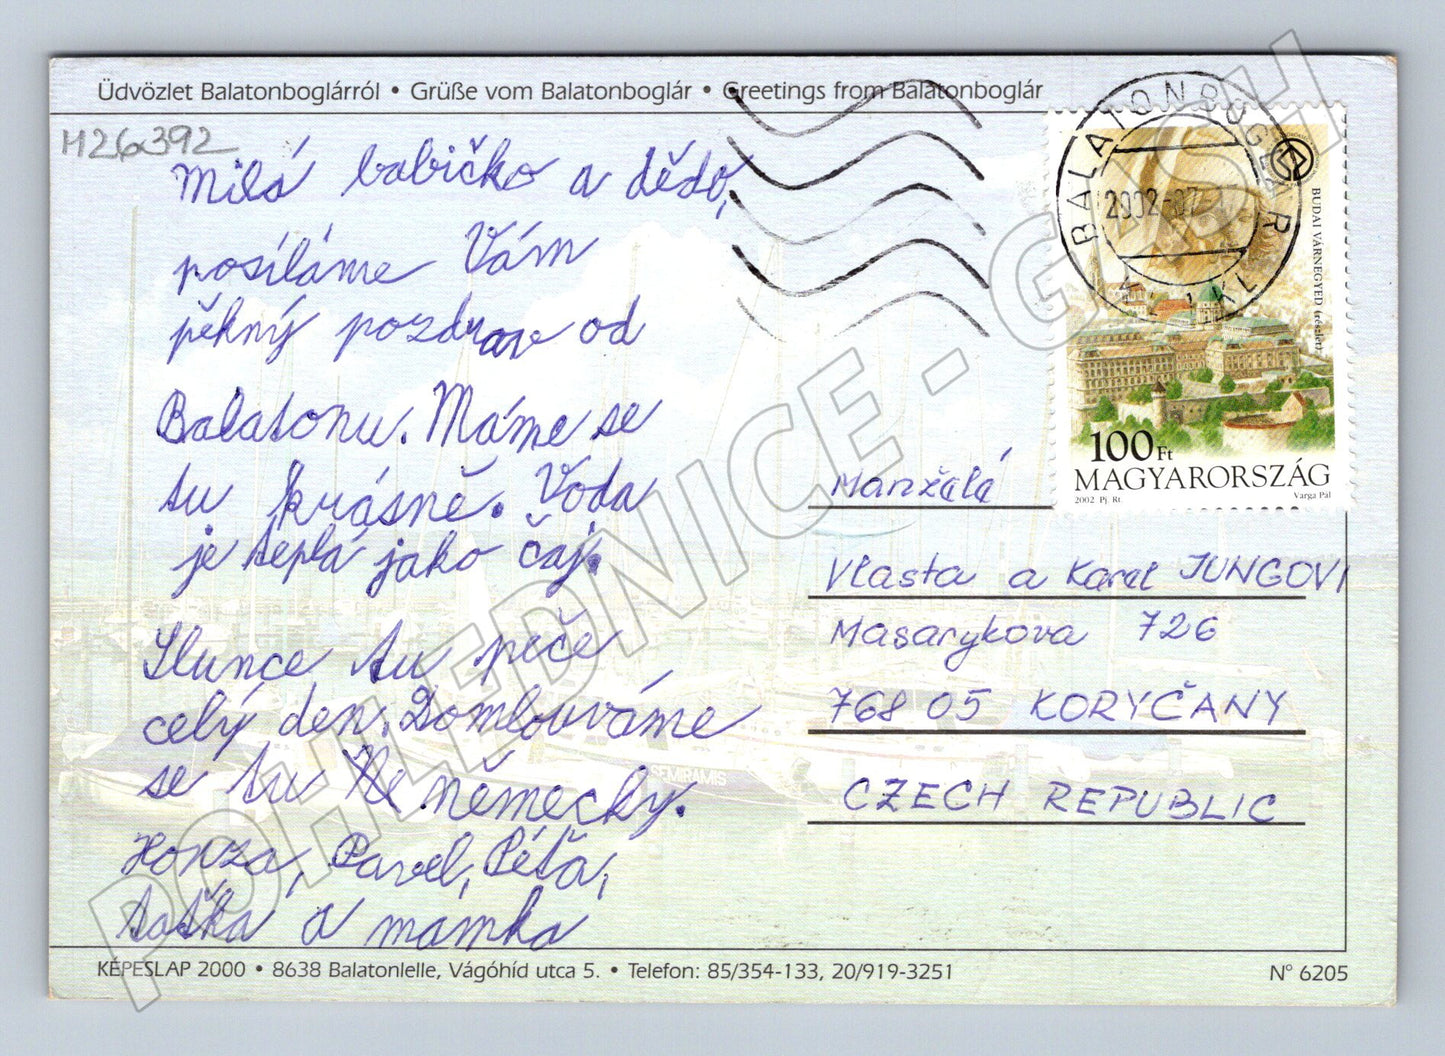 Üdvözlet Balatonboglárról • Grüße vom Balatonboglár • Greetings from Balatonboglár
M26392
Milá babičko a dědo,
posíláme Vám
pěkný pozdrav od
Balatonu. Máme se
tu krásně. Voda
je teplá jako čaj.
Slunce tu peče
celý den. Domlouváme
se tu německy.
Honza, Pavel, Péťa,
taťka a mamka
BALATONBOGLÁR
2002-07
BUDAI VÁRNEGYED (részlet)
100 Ft
MAGYARORSZÁG
2002 Pj. Rt. Varga Pál
Manželé
Vlasta a Karel JUNGOVI
Masarykova 726
768 05 KORYČANY
CZECH REPUBLIC
SEMIRAMIS
KÉPESLAP 2000 • 8638 Balatonlelle, Vágóhíd utca 5. • Telefon: 85/354-133, 20/919-3251
N° 6205
POHLEDNICE - GASH